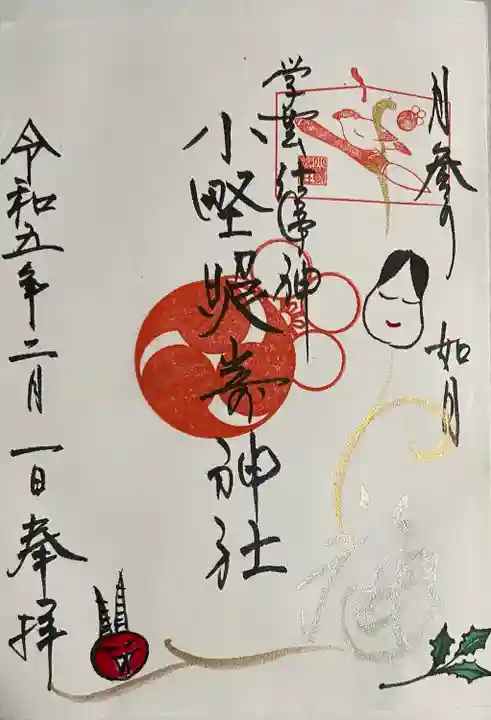 月参り 如月
学藝仕事神
小野照嵜神社
令和五年二月一日奉拝